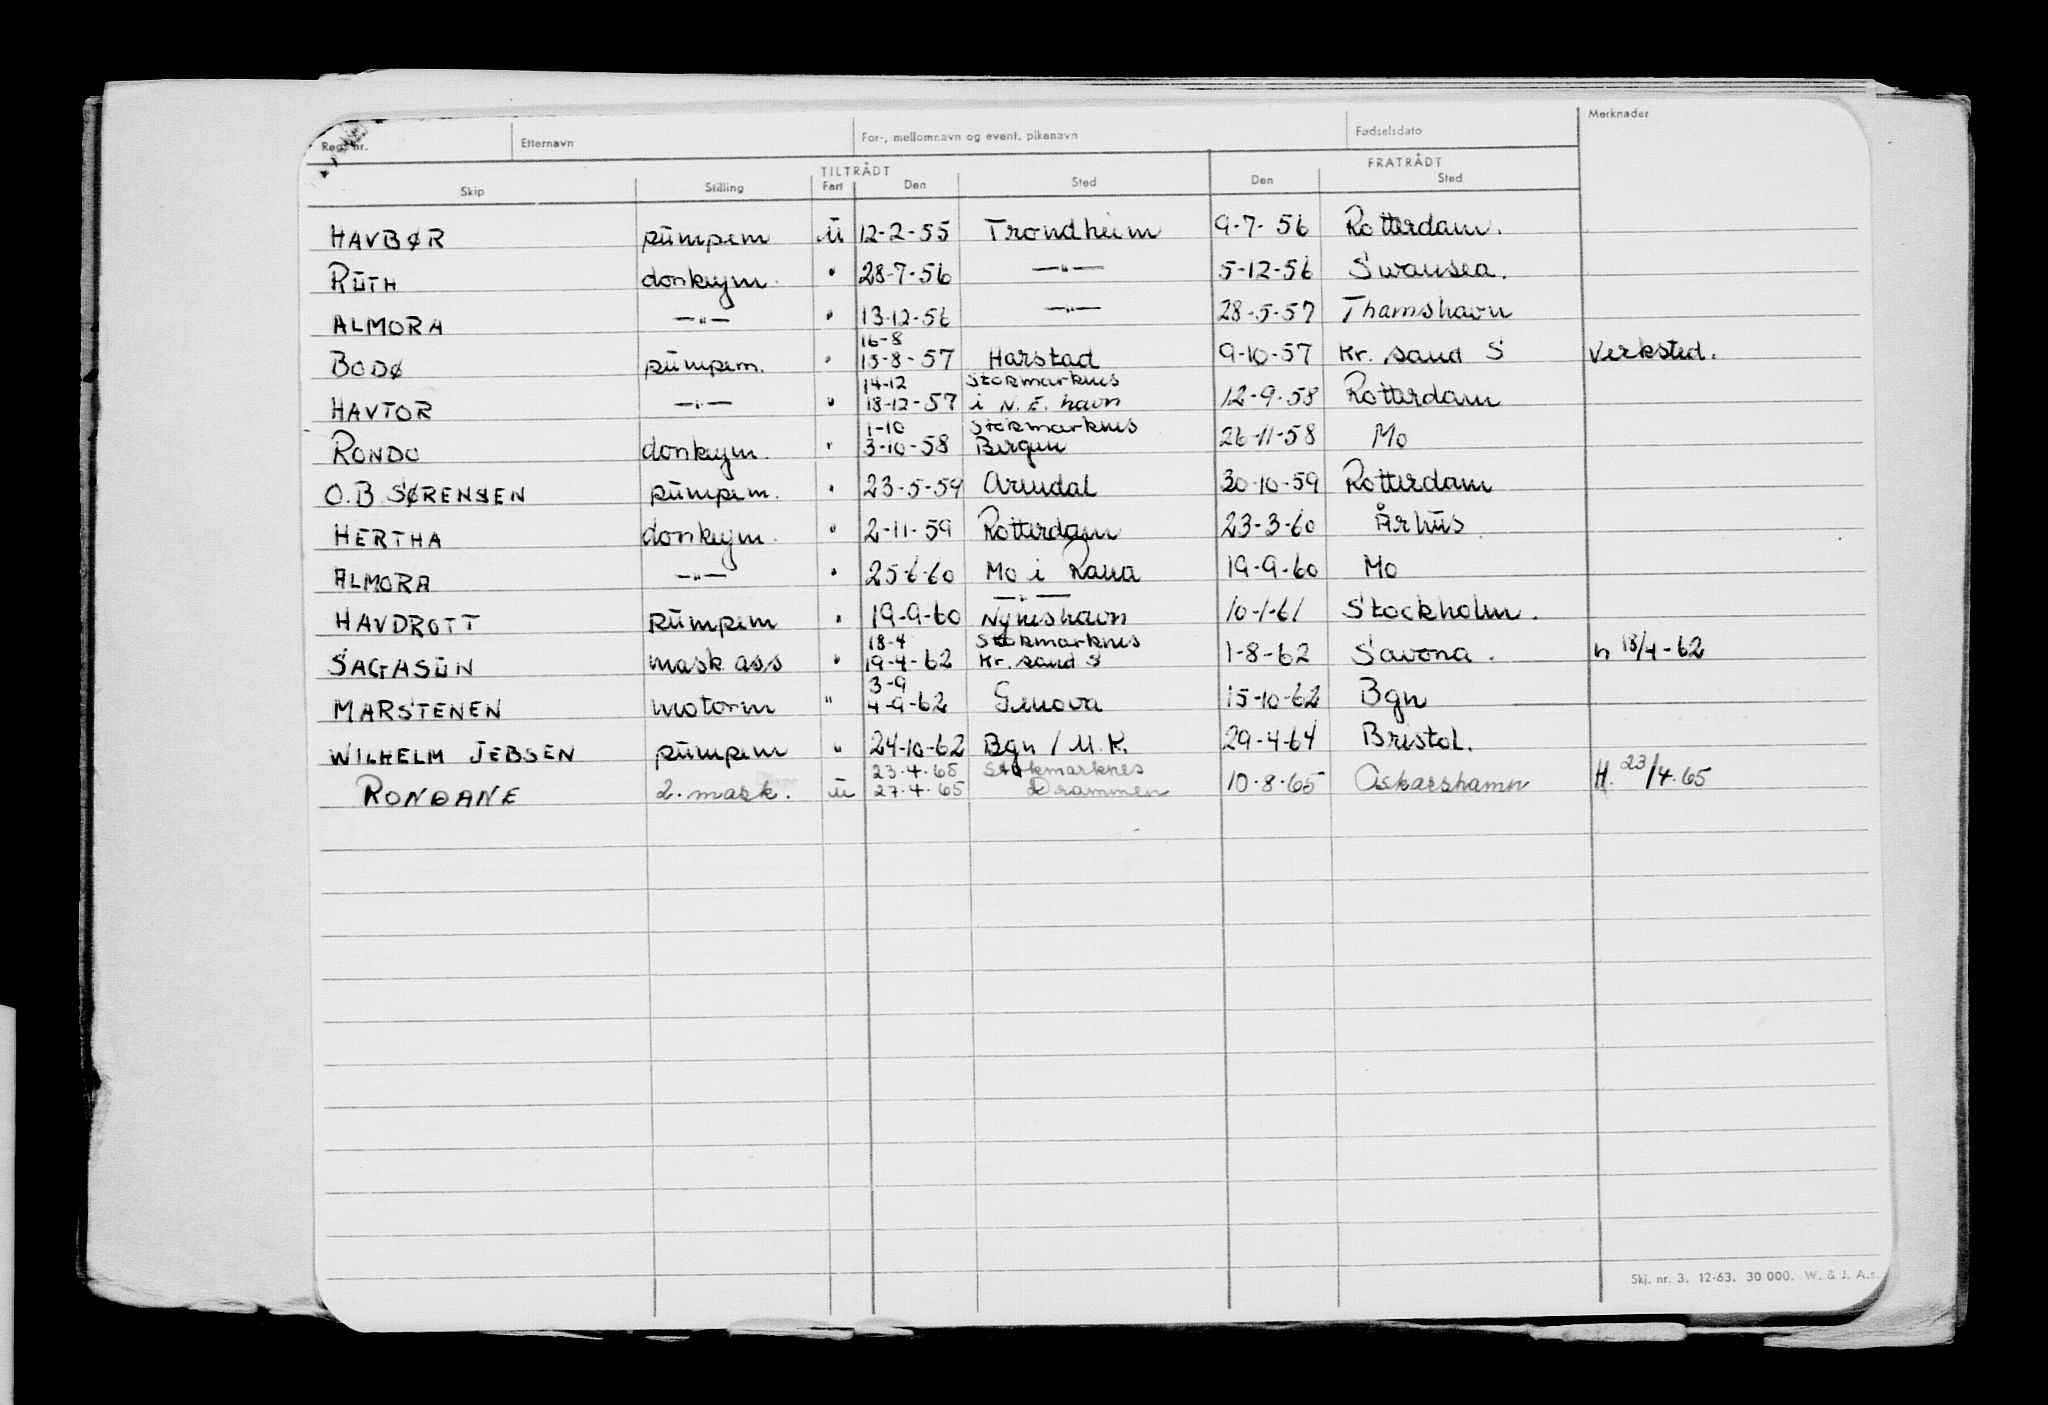 Reg. nr. Etternavn For-, mellomnavn og event. pikenavn Fødselsdato Merknader
TILTRÅDT FRATRÅDT
Skip Stilling Fart Den Sted Den Sted
HAVBØR pumpem U 12-2-55 Trondheim 9-7-56 Rotterdam.
RUTH donkeym. " 28-7-56 —"— 5-12-56 Swansea.
ALMORA —"— " 13-12-56 —"— 28-5-57 Thamshavn
16-8
BODØ pumpem. " 15-8-57 Harstad 9-10-57 Kr. sand S Verksted.
14-12 Stokmarknes
HAVTOR —"— " 18-12-57 i N.E. havn 12-9-58 Rotterdam
1-10 Stokmarknes
RONDO donkeym. " 3-10-58 Bergen 26-11-58 Mo
O.B. SØRENSEN pumpem. " 23-5-59 Arendal 30-10-59 Rotterdam
HERTHA donkeym. " 2-11-59 Rotterdam 23-3-60 Århus
ALMORA —"— " 25-6-60 Mo i Rana 19-9-60 Mo
—"—
HAVDROTT pumpem " 19-9-60 Nyneshavn 10-1-61 Stockholm.
18-4 Stokmarknes
SAGASUN mask ass " 19-4-62 Kr. sand S 1-8-62 Savona. h 18/4-62
3-9
MARSTENEN motorm " 4-9-62 Genova 15-10-62 Bgn
WILHELM JEBSEN pumpem " 24-10-62 Bgn / U.K. 29-4-64 Bristol.
23.4.65 Stokmarknes
RONDANE 2. mask. U 27.4.65 Drammen 10.8.65 Oskarshamn H. 23/4.65
Skj. nr. 3. 12-63. 30 000. W. & J. A.s.